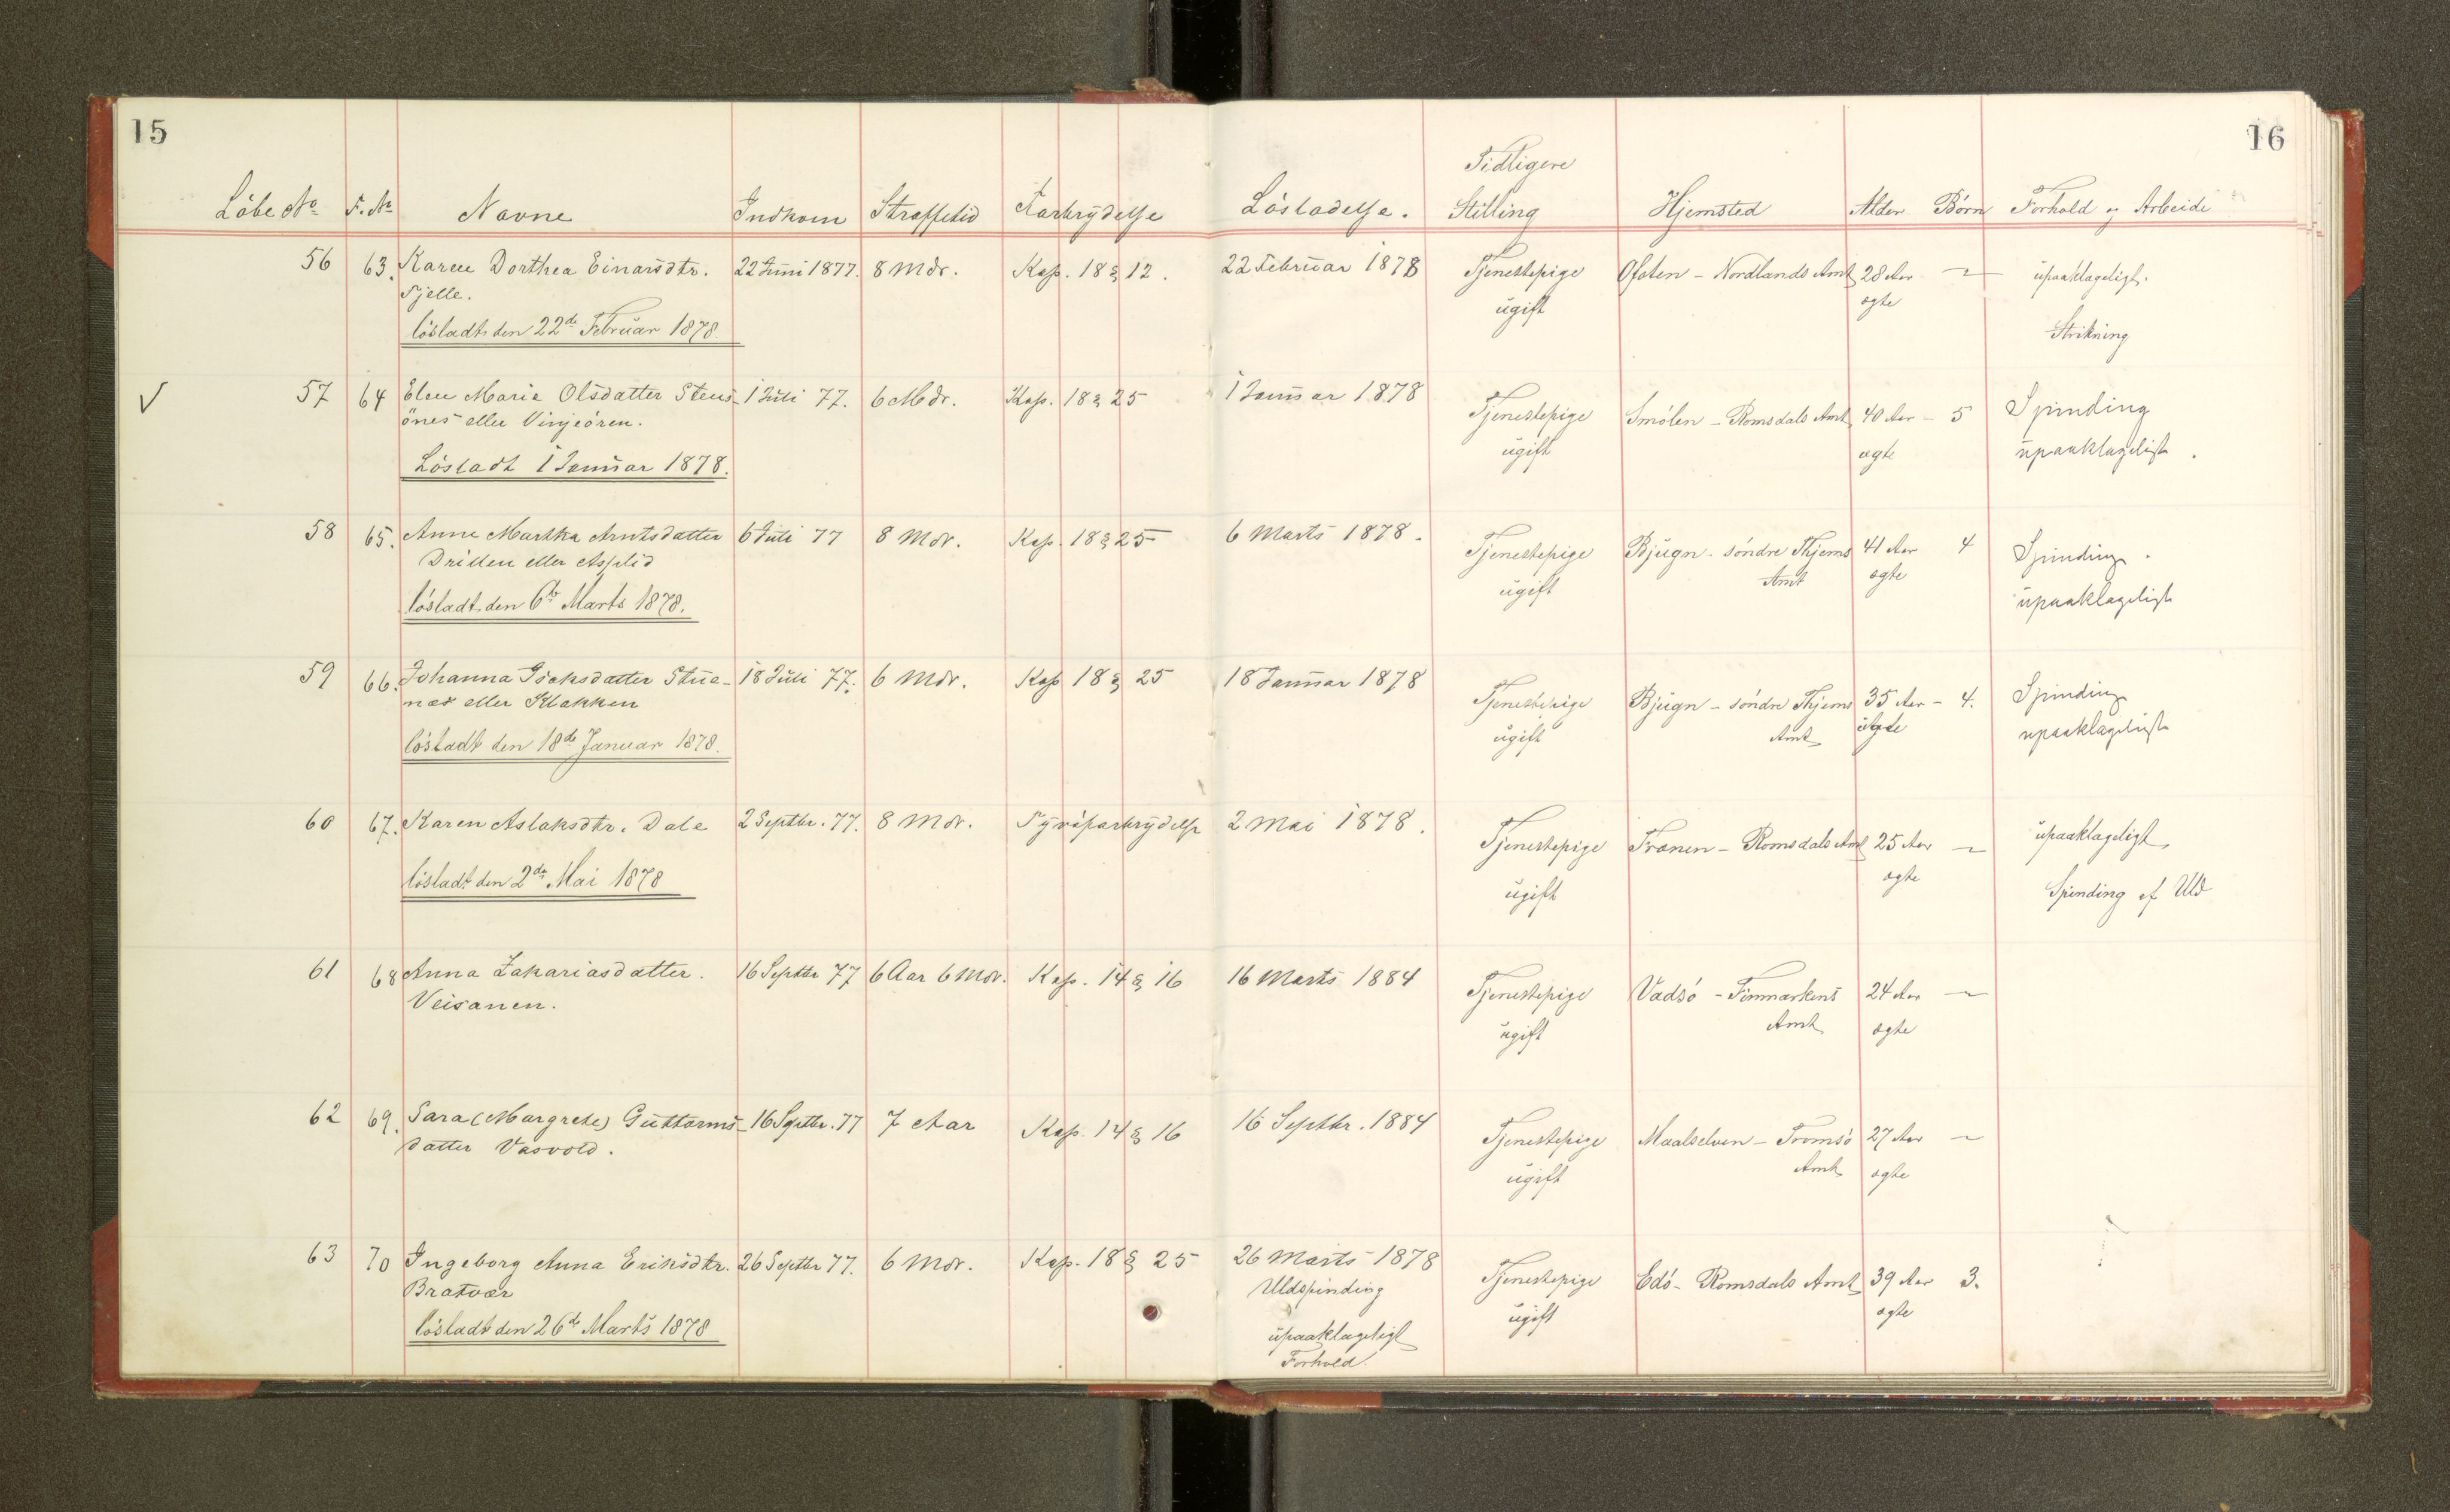 15
16
Löbe No F. No Navne Indkom Straffetid Forbrydelse Lösladelse. Tidligere Stilling Hjemsted Alder Börn Forhold og Arbeide
56 63. Karen Dorthea Einarsdtr. 22 Juni 1877. 8 Mdr. Kap. 18 § 12. 22 Februar 1878 Tjenestepige Ofoten - Nordlands Amt 28 Aar — upaaklageligt.
Fjelle. ugift ægte
lösladt den 22de Februar 1878. Strikning
V 57 64 Elen Maria Olsdatter Stens- 1 Juli 77. 6 Mdr. Kap. 18 § 25 1 Januar 1878 Tjenestepige Smölen - Romsdals Amt 40 Aar - 5 Spinding
önes eller Vinjeören. ugift ægte upaaklageligt.
Lösladt 1 Januar 1878.
58 65. Anne Martha Arntsdatter 6 Juli 77 8 Mdr. Kap. 18 § 25 6 Marts 1878. Tjenestepige Bjugn - söndre Thjems 41 Aar 4 Spinding.
eller Amt ægte upaaklageligt
ugift
lösladt den 6te Marts 1878.
59 66. Johanna datter 18 Juli 77. 6 Mdr. Kap 18 § 25 18 Januar 1878 Tjenestepige Bjugn - söndre Thjems 35 Aar - 4. Spinding
næs eller Klakken ugift Amt upaaklageligt
lösladt den 18de Januar 1878.
60 67. Karen Aslaksdtr. Dale 2 Septbr. 77. 8 Mdr. Tyvsforbrydelse 2 Mai 1878. Tjenestepige Frænen - Romsdals Amt 25 Aar — upaaklageligt,
lösladt den 2de Mai 1878 ugift ægte Spinding af Uld
61 68 Anna Zakariasdatter. 16 Septbr 77 6 Aar 6 Mdr. Kap. 14 § 16 16 Marts 1884 Tjenestepige Vadsö - Finmarkens 24 Aar —
Veisanen. ugift Amt ægte
62 69. Sara (Margrete) Guttorms- 16 Septbr. 77 7 Aar Kap. 14 § 16 16 Septbr. 1884 Tjenestepige Maalselven - Tromsö 27 Aar —
datter Vasvold. ugift Amt ægte
63 70 Ingeborg Anna Eriksdtr. 26 Septbr 77. 6 Mdr. Kap. 18 § 25 26 Marts 1878 Tjenestepige Edö - Romsdals Amt 39 Aar 3.
Bratvær Uldspinding ugift ægte
lösladt den 26de Marts 1878 upaaklageligt
Forhold.